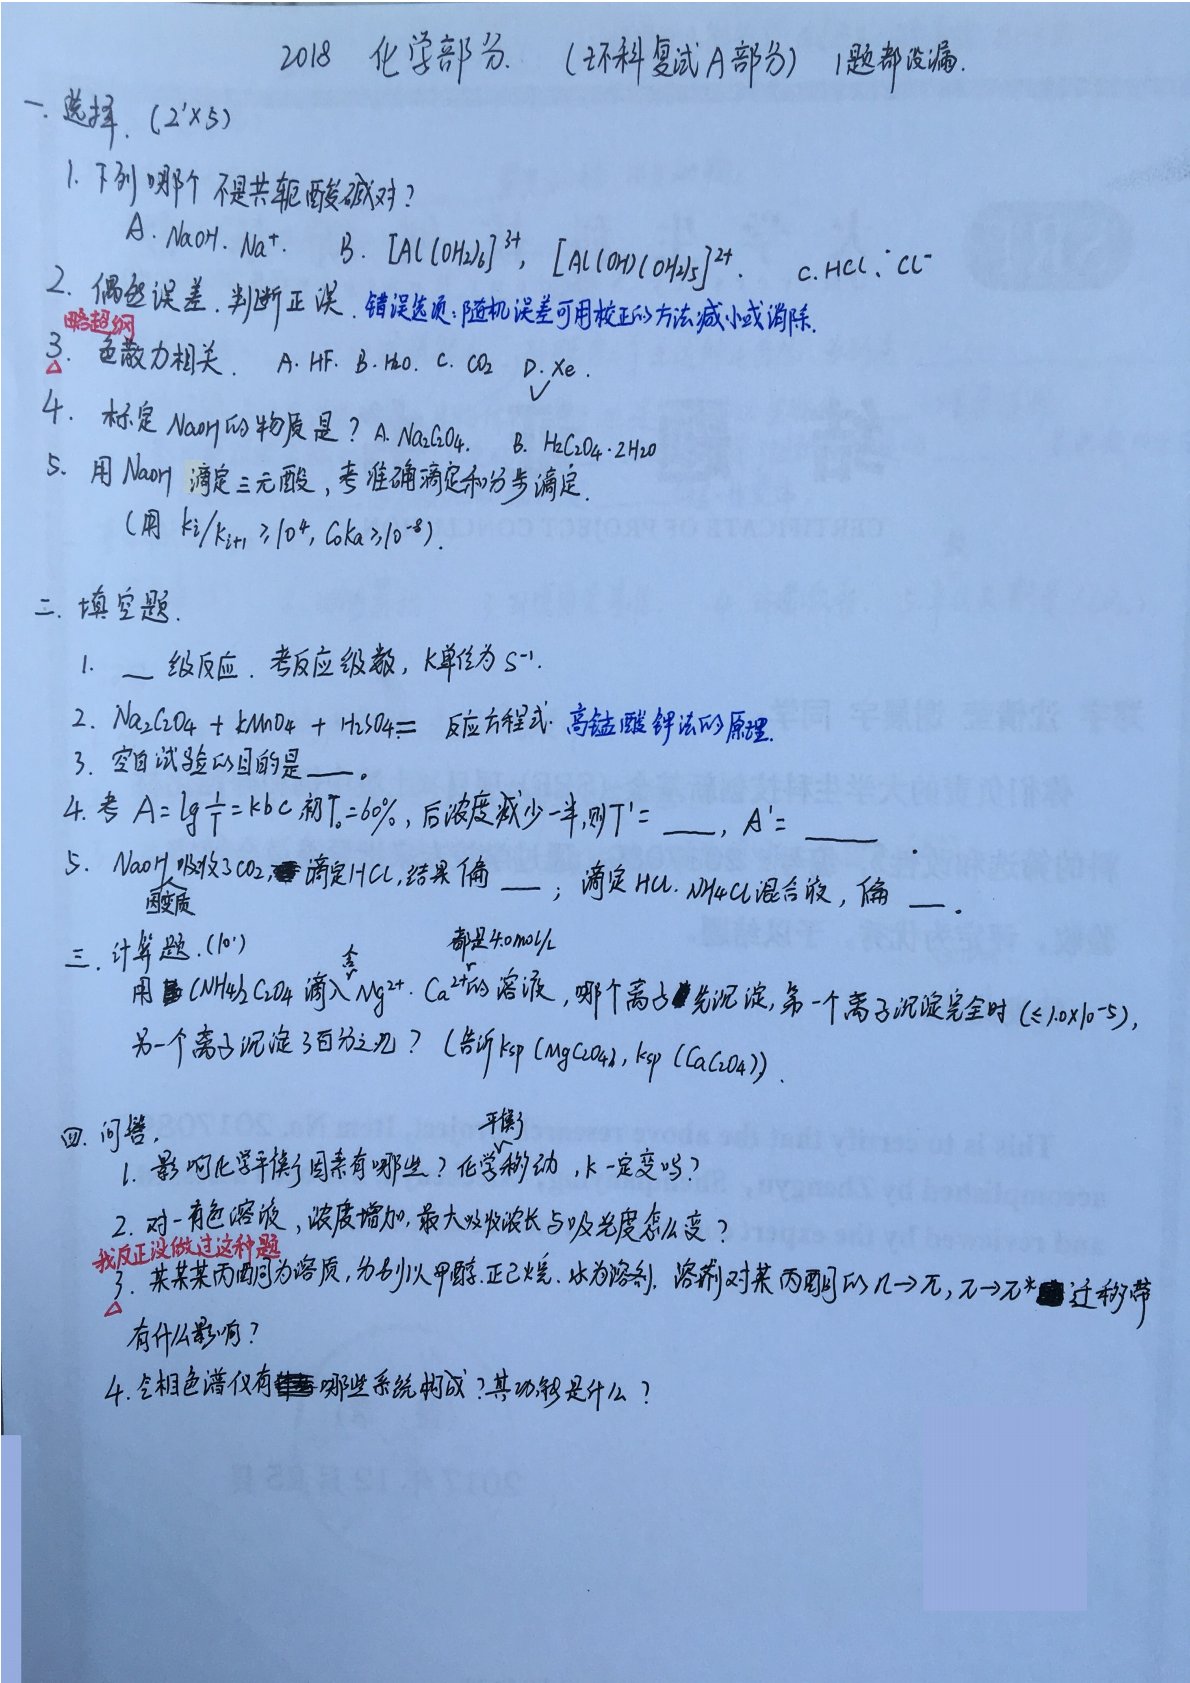 2018 化学部分. (环科复试A部分) 1题都没漏.
一. 选择. (2'×5)
1. 下列哪个不是共轭酸碱对?
A. NaOH. Na⁺. B. [Al(OH₂)₆]³⁺, [Al(OH)(OH₂)₅]²⁺. C. HCl. Cl⁻
2. 偶然误差. 判断正误. 错误选项: 随机误差可用校正的方法减小或消除.
略超纲
3. 色散力相关. A. HF. B. H₂O. C. CO₂ D. Xe.
4. 标定NaOH的物质是? A. Na₂C₂O₄. B. H₂C₂O₄·2H₂O
5. 用NaOH 滴定三元酸, 考准确滴定和分步滴定.
(用 Ki/Ki+1 ≥10⁴, C₀Ka≥10⁻⁸).
二. 填空题.
1. __ 级反应. 考反应级数, K单位为S⁻¹.
2. Na₂C₂O₄ + KMnO₄ + H₂SO₄ = 反应方程式. 高锰酸钾法的原理.
3. 空白试验的目的是___。
4. 考 A=lg1/T=Kbc 初T₀=60%, 后浓度减少一半, 则T'= ___, A'= ____.
5. NaOH 吸收了CO₂, 滴定HCl, 结果偏 __; 滴定HCl. NH₄Cl混合液, 偏 __.
因变质
三. 计算题. (10') 含 都是4.0mol/L
用 (NH₄)₂C₂O₄ 滴入 Mg²⁺. Ca²⁺的溶液, 哪个离子先沉淀, 第一个离子沉淀完全时 (≤1.0×10⁻⁵),
另一个离子沉淀了百分之几? (告诉Ksp (MgC₂O₄), Ksp (CaC₂O₄)).
四. 问答. 平衡
1. 影响化学平衡因素有哪些? 化学移动, K一定变吗?
2. 对一有色溶液, 浓度增加, 最大吸收波长与吸光度怎么变?
我反正没做过这种题
3. 某某某丙酮为溶质, 分别以甲醇. 正己烷. 水为溶剂. 溶剂对某丙酮的 n→π, π→π* 迁移带
有什么影响?
4. 气相色谱仪有哪些系统构成? 其功能是什么?